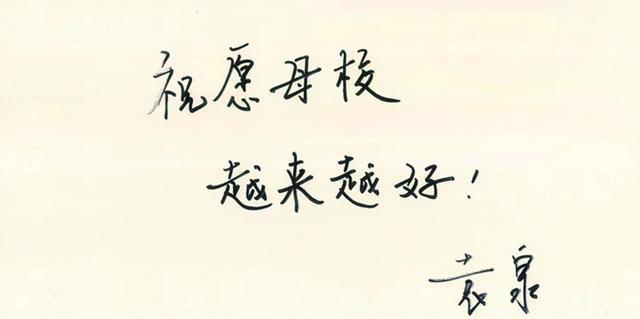 祝愿母校
越来越好!
袁泉